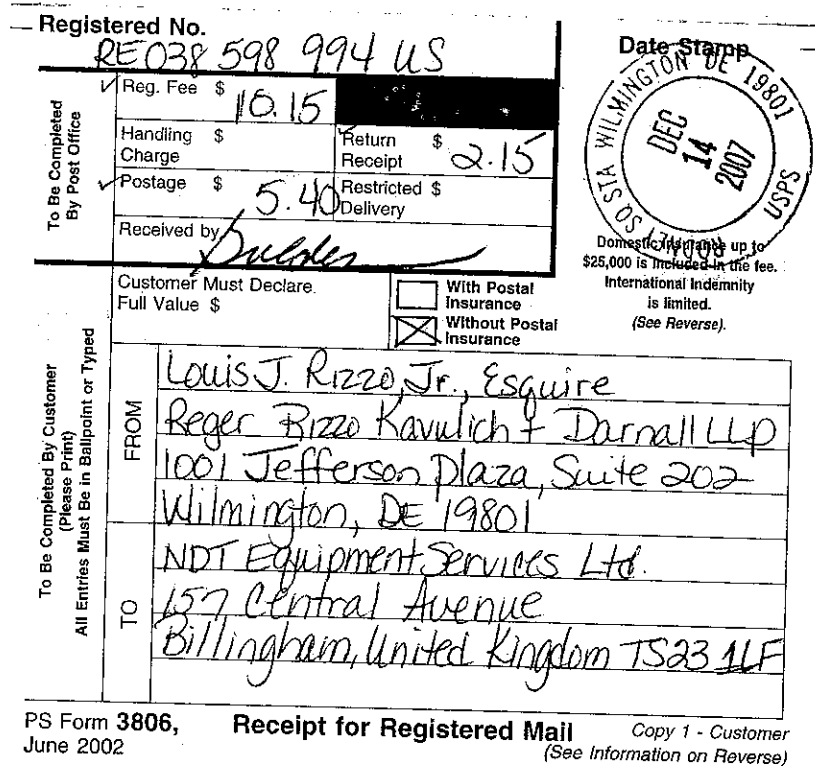 Registered No.
RE038 598 994 US
Date Stamp
To Be Completed
By Post Office
Reg. Fee $ 10.15
Handling Charge $
Return Receipt $ 2.15
Postage $ 5.40
Restricted Delivery $
Received by
RODNEY SQ STA WILMINGTON DE 19801
DEC
14
2007
USPS
Domestic Insurance up to
$25,000 is included in the fee.
International Indemnity
is limited.
(See Reverse).
Customer Must Declare
Full Value $
With Postal
Insurance
Without Postal
Insurance
To Be Completed By Customer
(Please Print)
All Entries Must Be in Ballpoint or Typed
FROM
Louis J. Rizzo, Jr., Esquire
Reger Rizzo Kavulich + Darnall LLP
1001 Jefferson Plaza, Suite 202
Wilmington, DE 19801
TO
NDT Equipment Services Ltd.
157 Central Avenue
Billingham, United Kingdom TS23 1LF
PS Form 3806,
June 2002
Receipt for Registered Mail
Copy 1 - Customer
(See Information on Reverse)